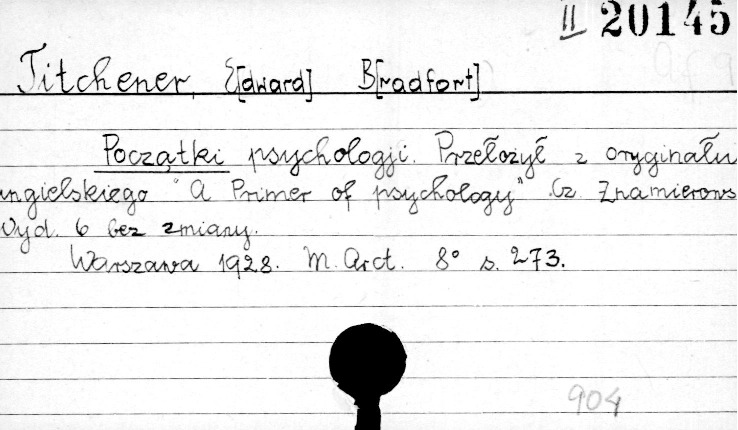 II 20145
Titchener, E[dward] B[radfort]
Początki psychologji. Przełożył z oryginału
ngielskiego "A Primer of psychology" Cz. Znamierows
Wyd. 6 bez zmiany.
Warszawa 1928. M. Arct. 8° s. 273.
904